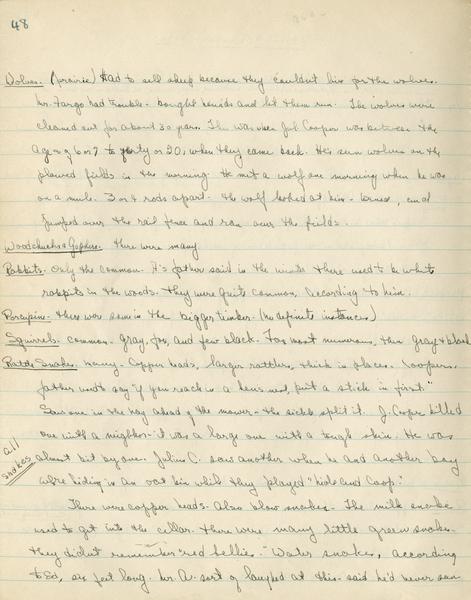 48
Wolves. (prairie) Had to sell sheep because they couldn't live for the wolves.
Mr. Fargo had trouble - bought hounds and let them run. The wolves were
cleaned out for about 30 years. This was when Jul Cooper was between the
age of 6 or 7 to forty or 50, when they came back. He's seen wolves on the
plowed fields in the morning. He met a wolf one morning when he was
on a mule. 3 or 4 rods apart - the wolf looked at him - turned, and
jumped over the rail fence and ran over the fields.
Woodchucks & Gophers. There were many
Rabbits. Only the common. A's father said in the winter there used to be white
rabbits in the woods. They were quite common, according to him.
Porcupine. There were some in the bigger timber. (No definite instances)
Squirrels. Common - gray, fox, and few black. Fox most numerous, then gray & black
Rattle Snakes. Many. Copper heads, larger rattlers, thick in places. Coopers
father used to say "if you reach in a hen's nest, put a stick in first."
Saw one in the hay ahead of the mower - the sickle split it. J. Cooper killed
one with a neighbor - it was a large one with a tough skin. He was
almost bit by one. Julius C. saw another when he and another boy
were hiding in an oat bin while they played "hide and Coop."
all
snakes
There were copper heads. Also blow snakes. The milk snake
used to get into the cellar. There were many little green snakes.
They didn't remember "red bellies." Water snakes, according
to Ed, six feet long. Mr. A. sort of laughed at this - said he'd never seen